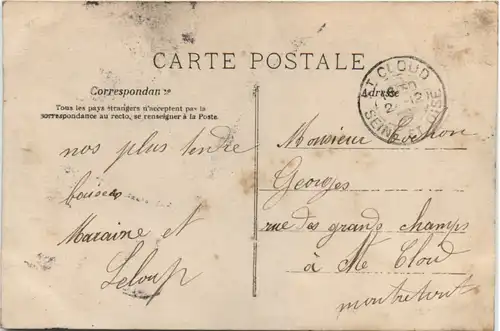 CARTE POSTALE
Correspondance
Tous les pays étrangers n'acceptent pas la
correspondance au recto, se renseigner à la Poste.
nos plus tendre
baisers
Maraine et
Leloup
ST CLOUD
SEINE-ET-OISE
Adresse
Monsieur
Georges
rue des grands champs
à St Cloud
montretout